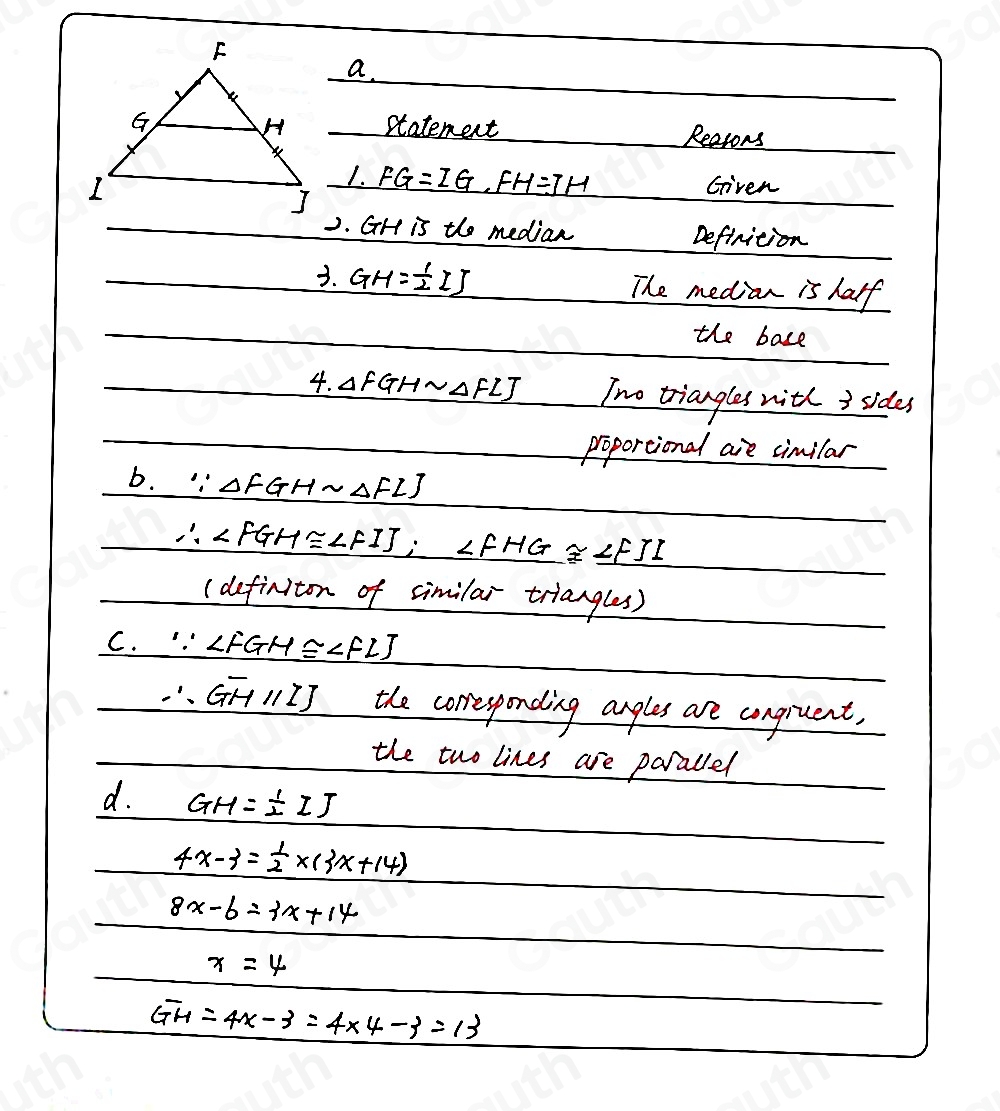 F
a.
G
H
I
J
Statement Reasons
1. FG=IG, FH=JH Given
2. GH is the median Definition
3. GH=½IJ The median is half
the base
4. △FGH~△FIJ Two triangles with 3 sides
proportional are similar
b. ∵ △FGH~△FIJ
∴ ∠FGH≅∠FIJ; ∠FHG≅∠FJI
(definiton of similar triangles)
c. ∵ ∠FGH≅∠FIJ
∴ G̅H̅ // IJ the corresponding angles are congruent,
the two lines are parallel
d. GH=½IJ
4x-3=½×(3x+14)
8x-6=3x+14
x=4
G̅H̅=4x-3=4×4-3=13
Gauth